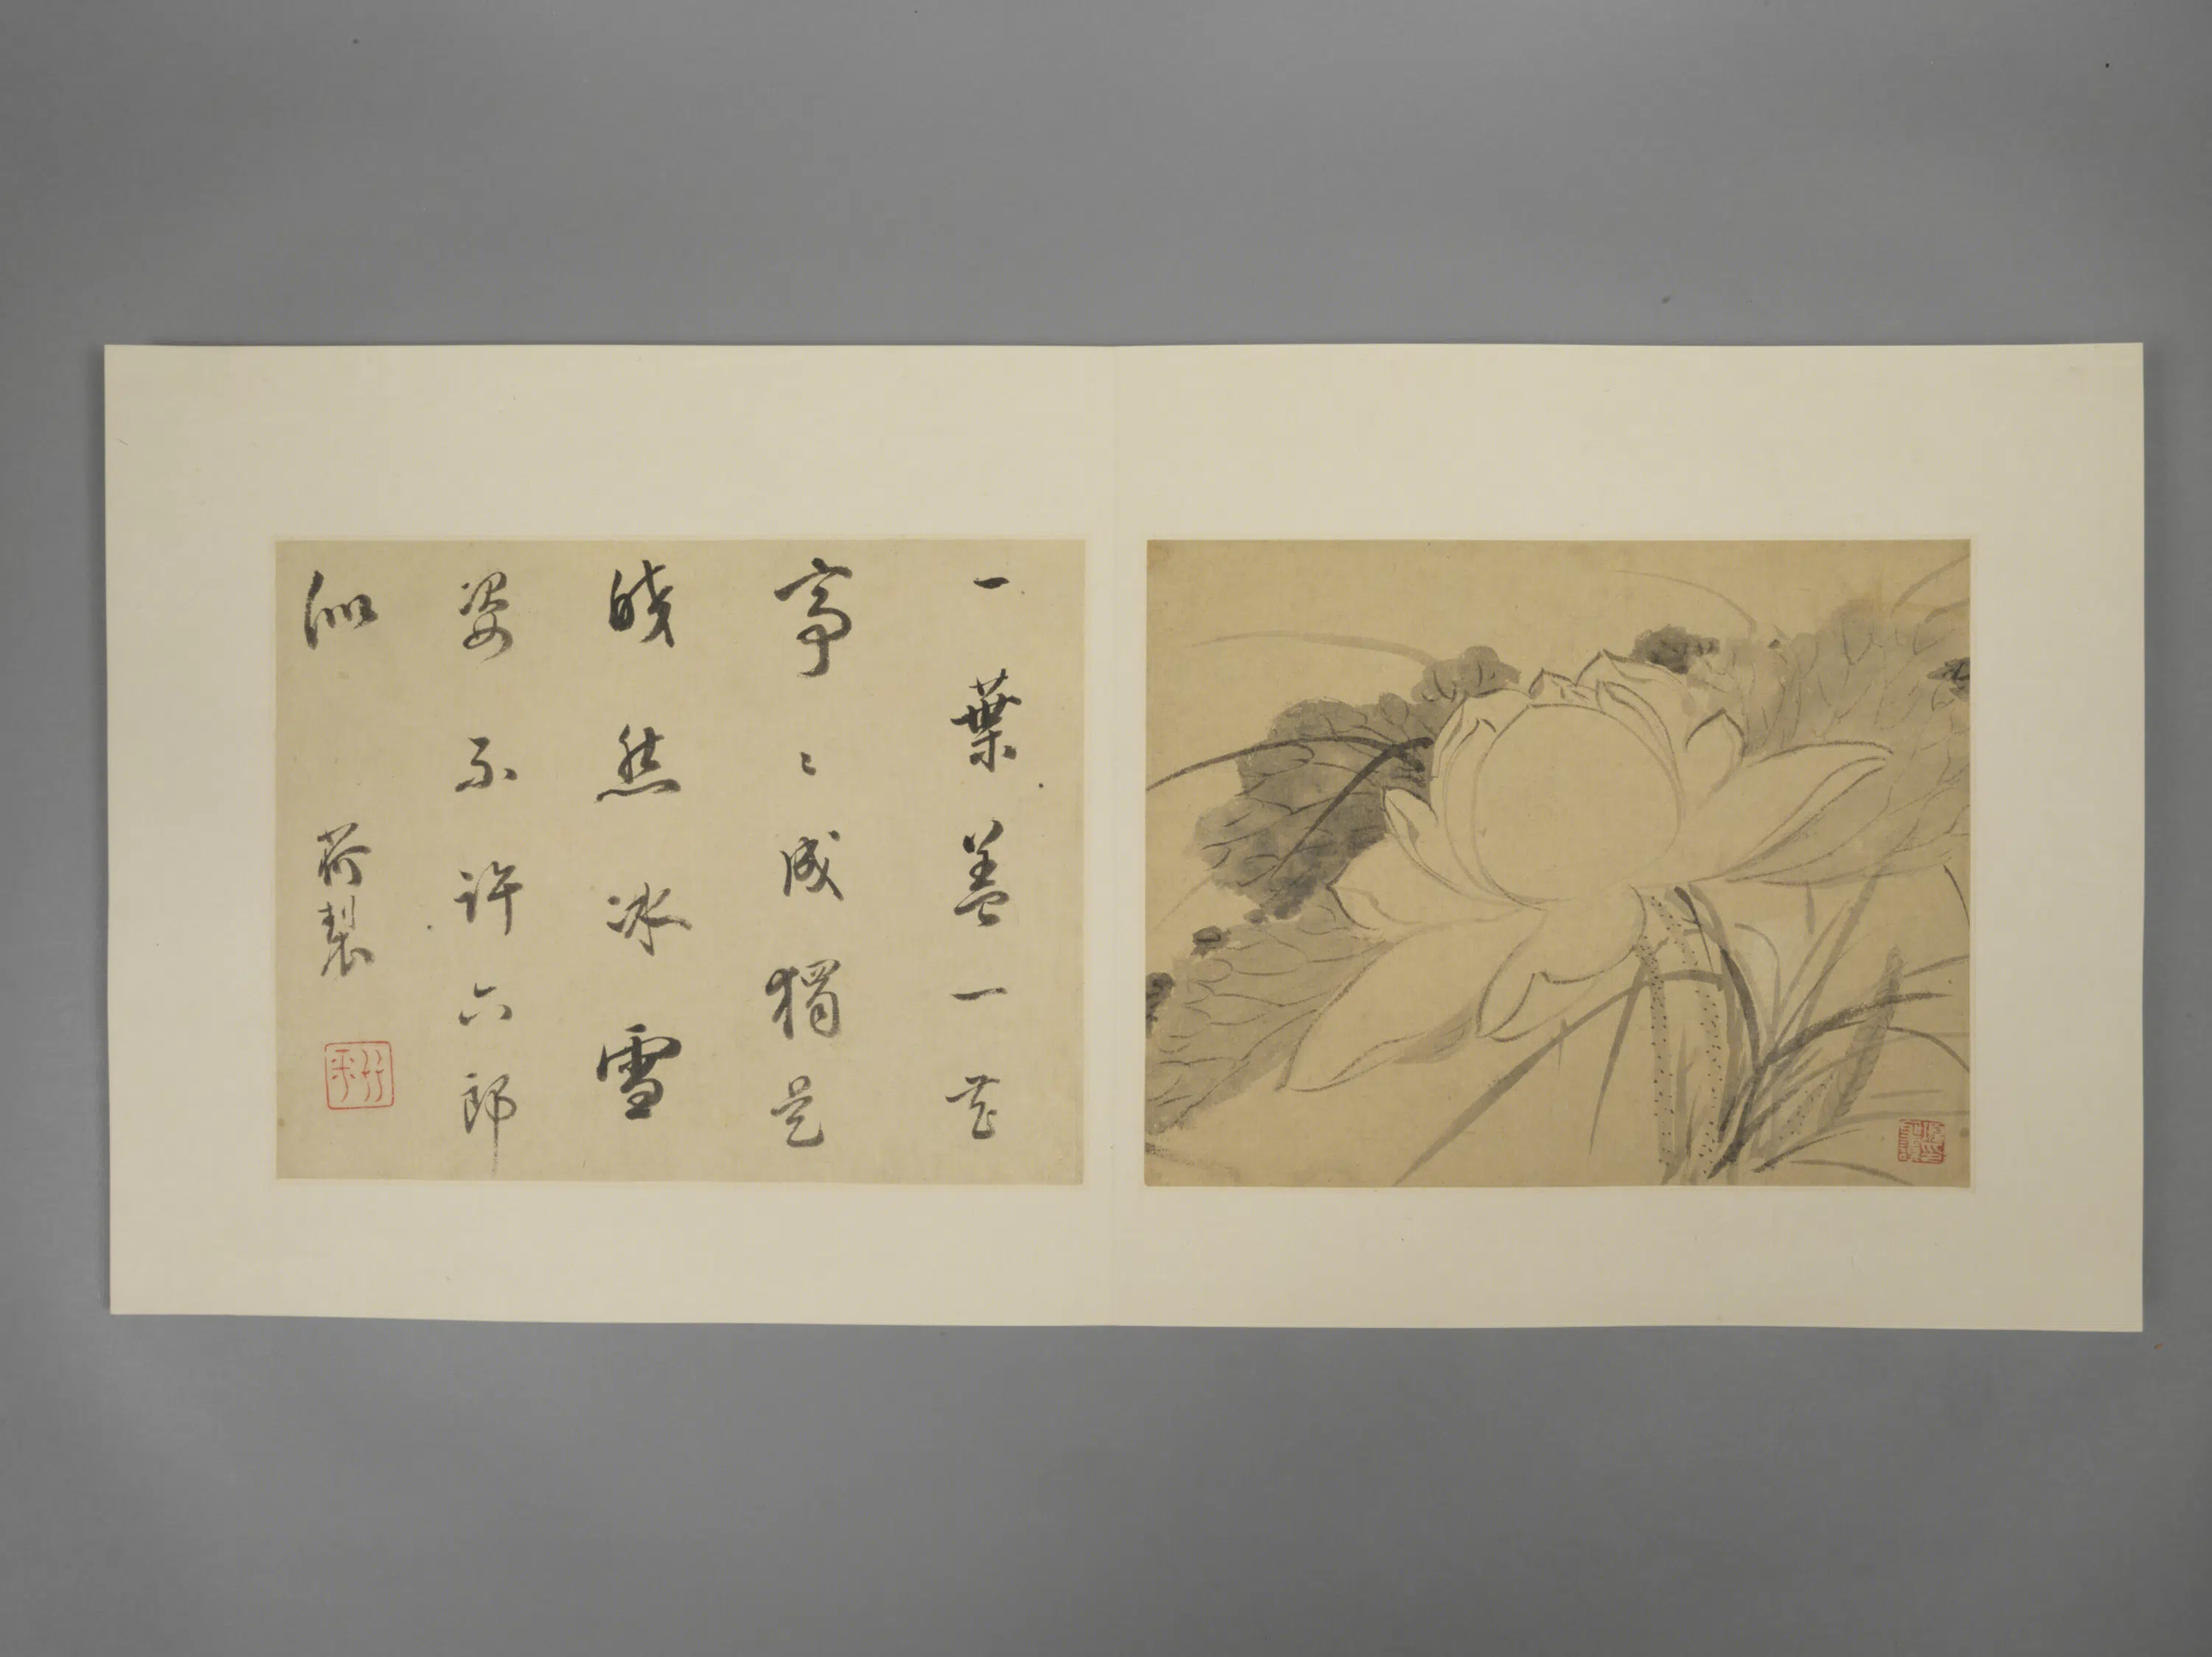 一葉蓋一花
亭〻成獨是
皎然冰雪
姿不許六郎
似
荷製